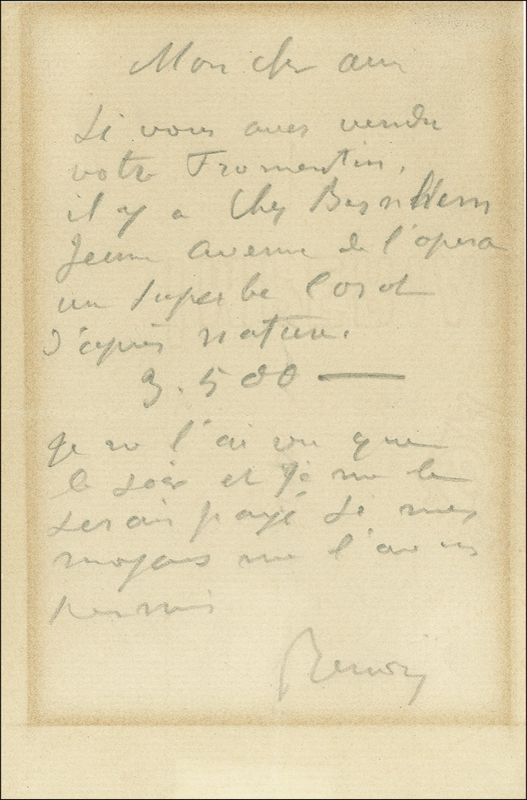 Mon cher ami
Si vous avez vendu
votre Fromentin,
il y a chez Bernheim
Jeune avenue de l'opera
un superbe Corot
d'après nature.
3.500 —
Je ne l'ai vu que
le soir et je me le
serais payé si mes
moyens me l'avais
permis
Renoir